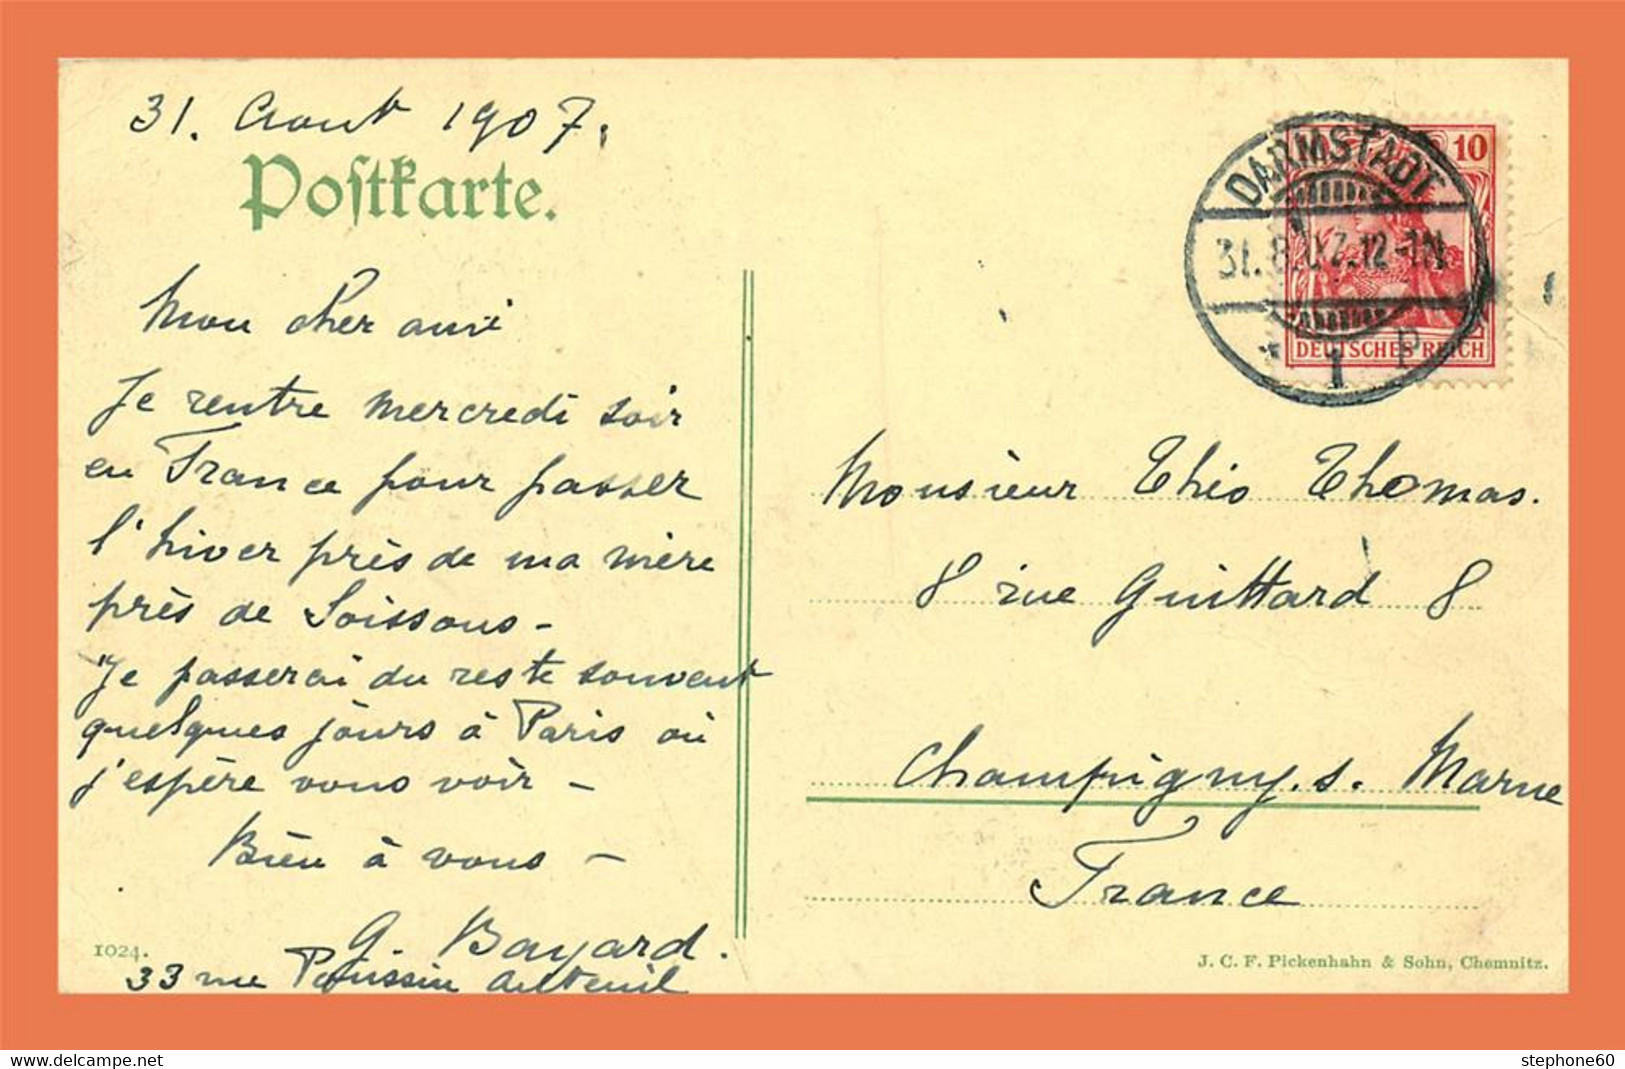 31. Aout 1907.
Postkarte.
Mon cher ami
Je rentre mercredi soir
en France pour passer
l'hiver près de ma mère
près de Soissons -
Je passerai du reste souvent
quelques jours à Paris où
j'espère vous voir -
Bien à vous -
G. Bayard.
33 rue Poussin Auteuil
1024.
10
DARMSTADT
31.8.07.12-1N
* 1 P
DEUTSCHES REICH
Monsieur Théo Thomas.
8 rue Guittard 8
Champigny. s. Marne
France
J. C. F. Pickenhahn & Sohn, Chemnitz.
www.delcampe.net
stephone60